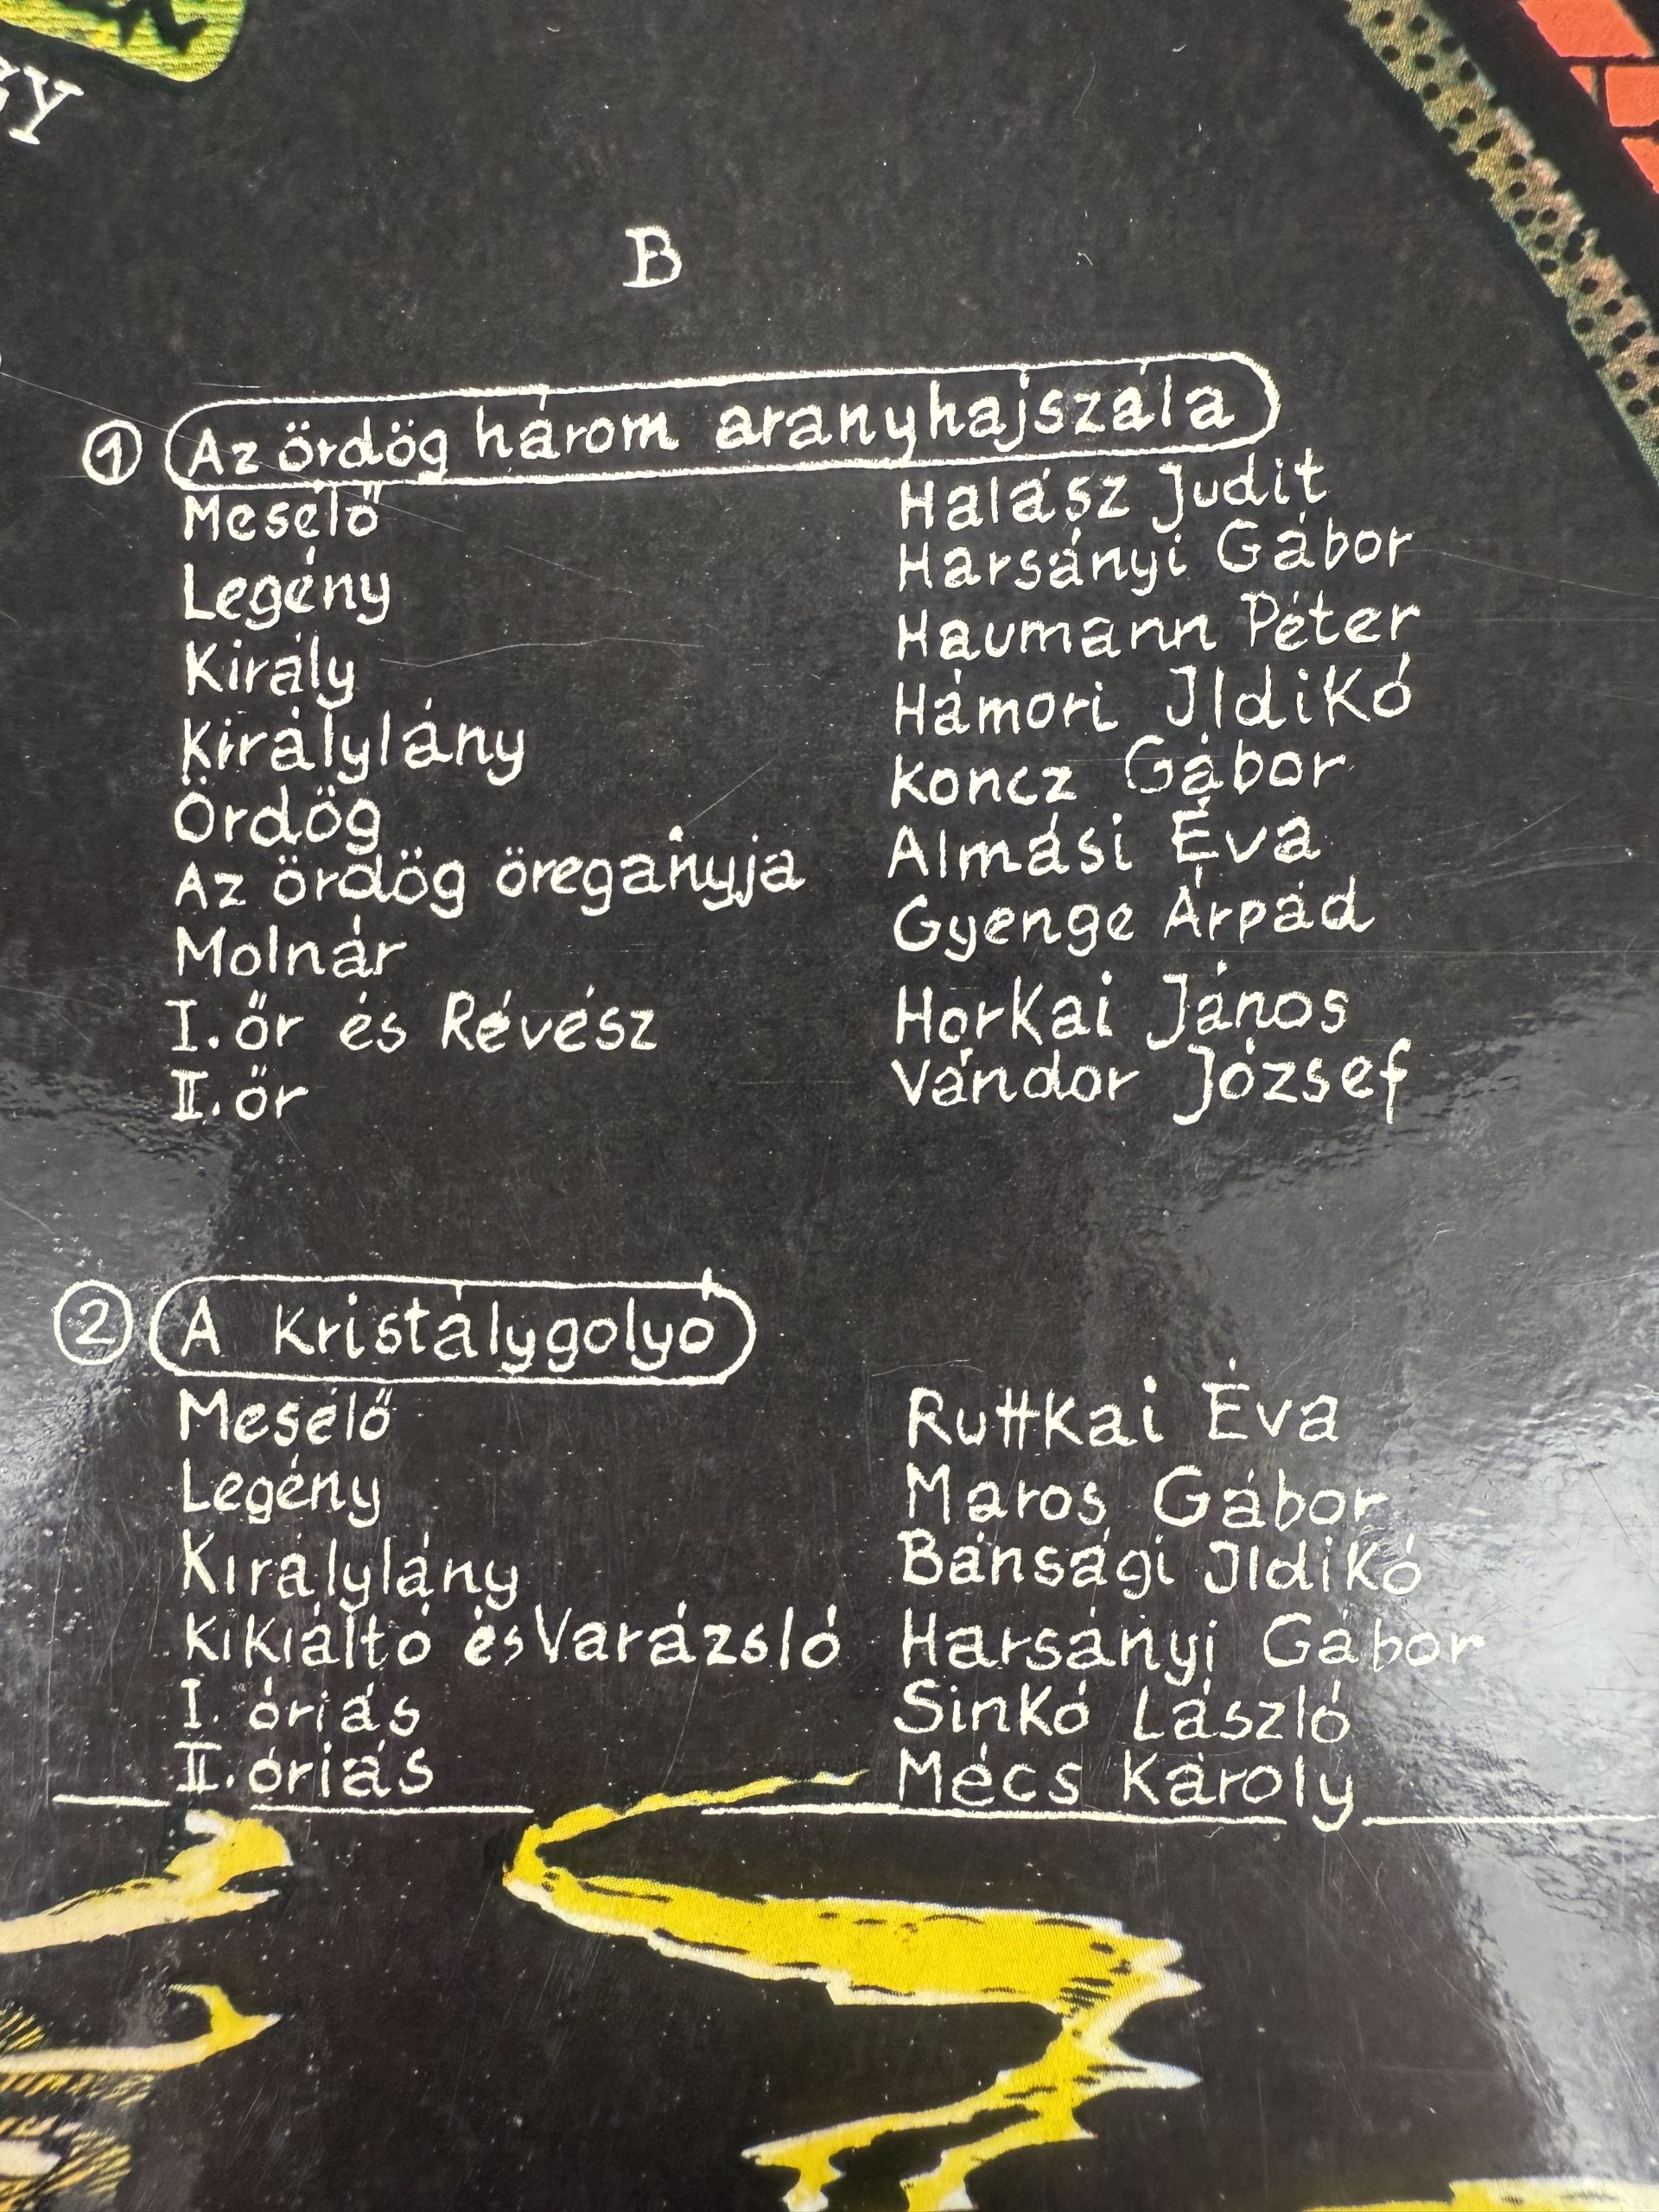 B
① Az ördög három aranyhajszála
Mesélő Halász Judit
Legény Harsányi Gábor
Király Haumann Péter
Királylány Hámori Ildikó
Ördög Koncz Gábor
Az ördög öreganyja Almási Éva
Molnár Gyenge Árpád
I. őr és Révész Horkai János
II. őr Vándor József
② A Kristálygolyó
Mesélő Ruttkai Éva
Legény Maros Gábor
Királylány Bánsági Ildikó
Kikiáltó és Varázsló Harsányi Gábor
I. óriás Sinkó László
II. óriás Mécs Károly